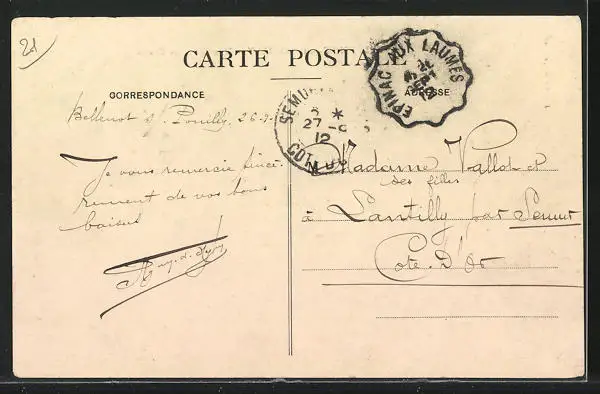 21
CARTE POSTALE
CORRESPONDANCE
ADRESSE
EPINAC AUX LAUMES
SEMUR
27
12
Bellenot s/ Pouilly, 26-9-
Je vous remercie sincè-
rement de vos bons
baisers
Madame Vallot et
ses filles
à Lantilly par Semur
Cote-D'Or